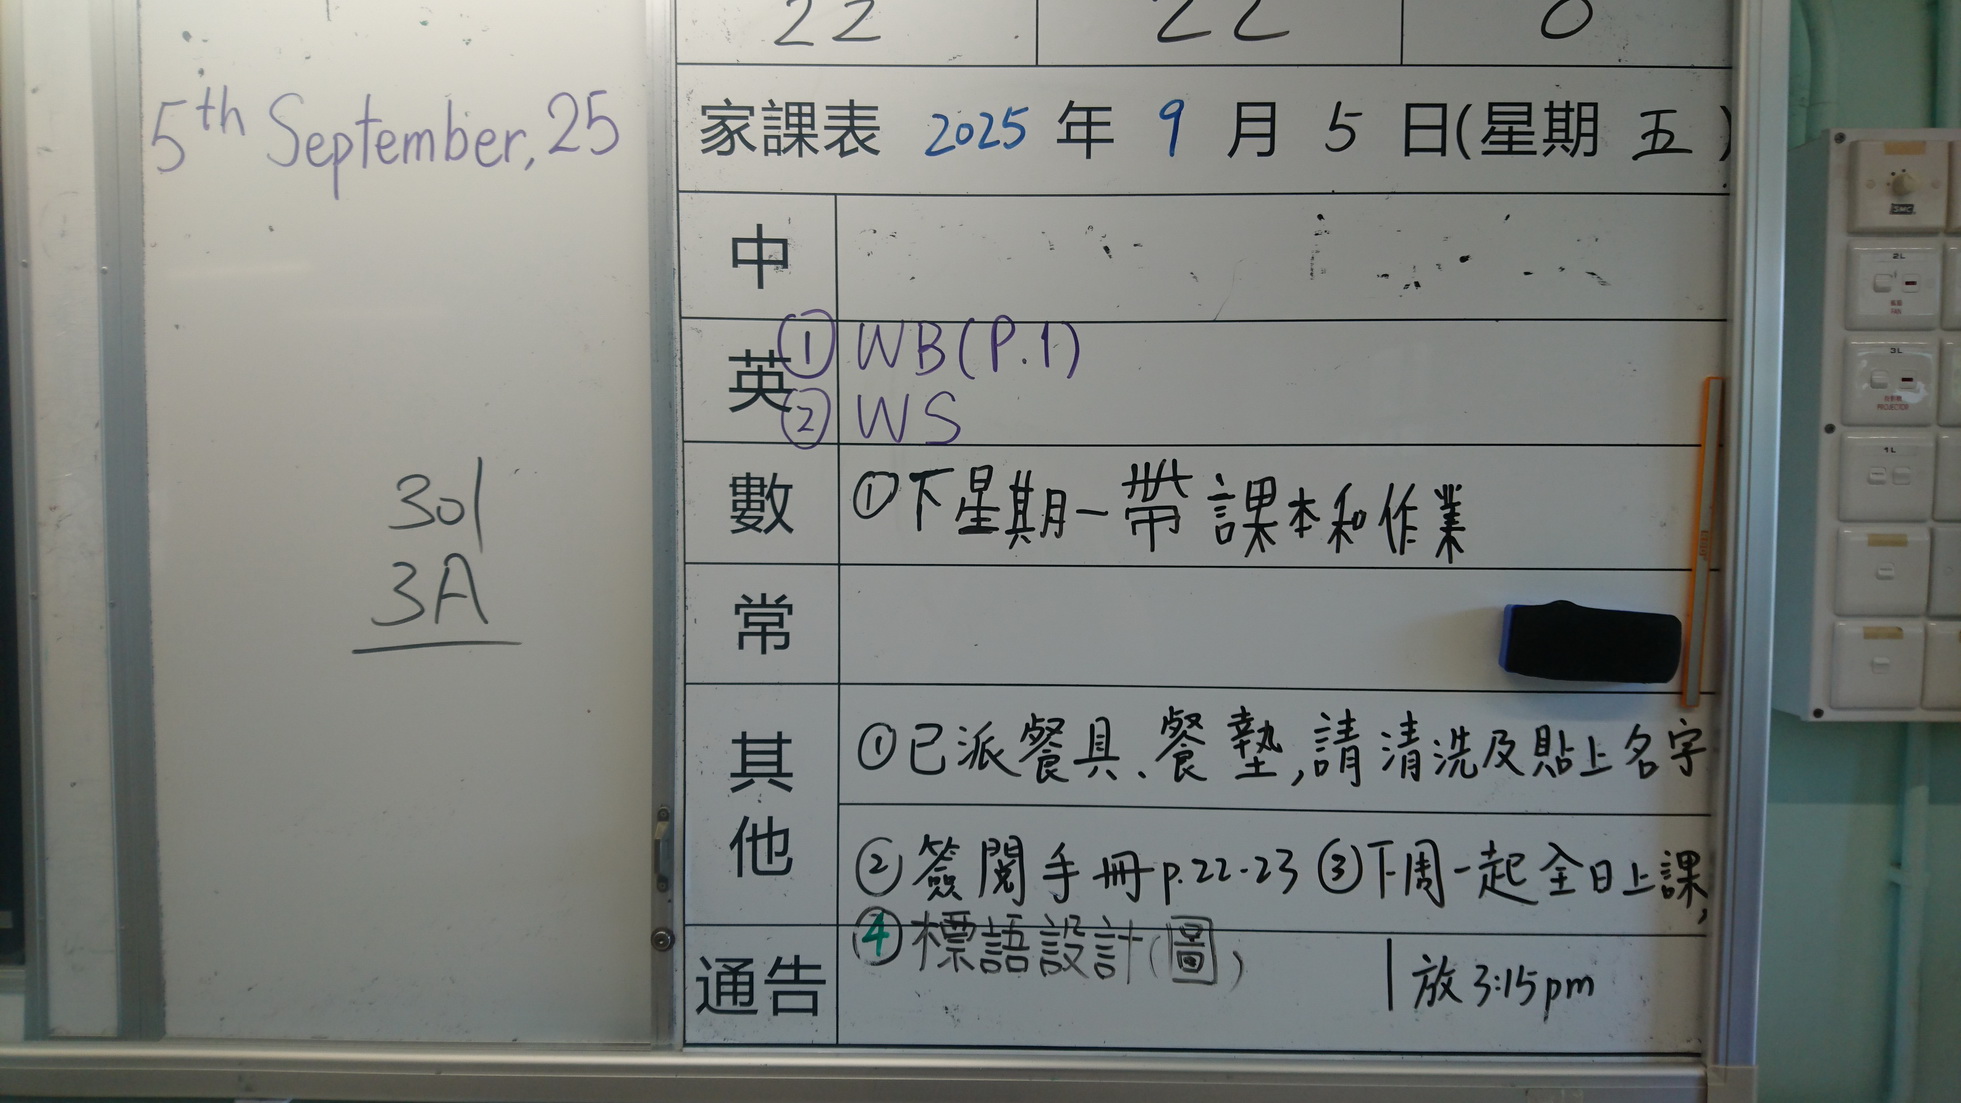 22 22 0
5th September, 25
家課表 2025 年 9 月 5 日(星期 五)
中
英 ① WB(P.1)
② WS
數 ①下星期一帶課本和作業
301
3A
常
其他 ①已派餐具、餐墊,請清洗及貼上名字
②簽閱手冊p.22-23 ③下周一起全日上課,
放3:15pm
④標語設計(圖)
通告
2L
FAN
3L
PROJECTOR
1L